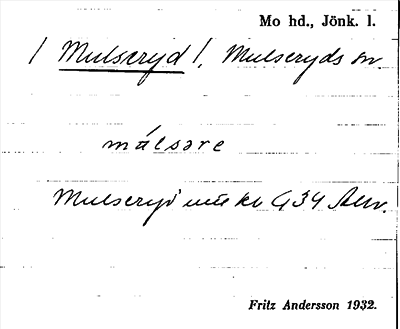 Mo hd., Jönk. l.
/ Mulseryd /, Mulseryds sn.
målsare
Mulseryd
Fritz Andersson 1932.